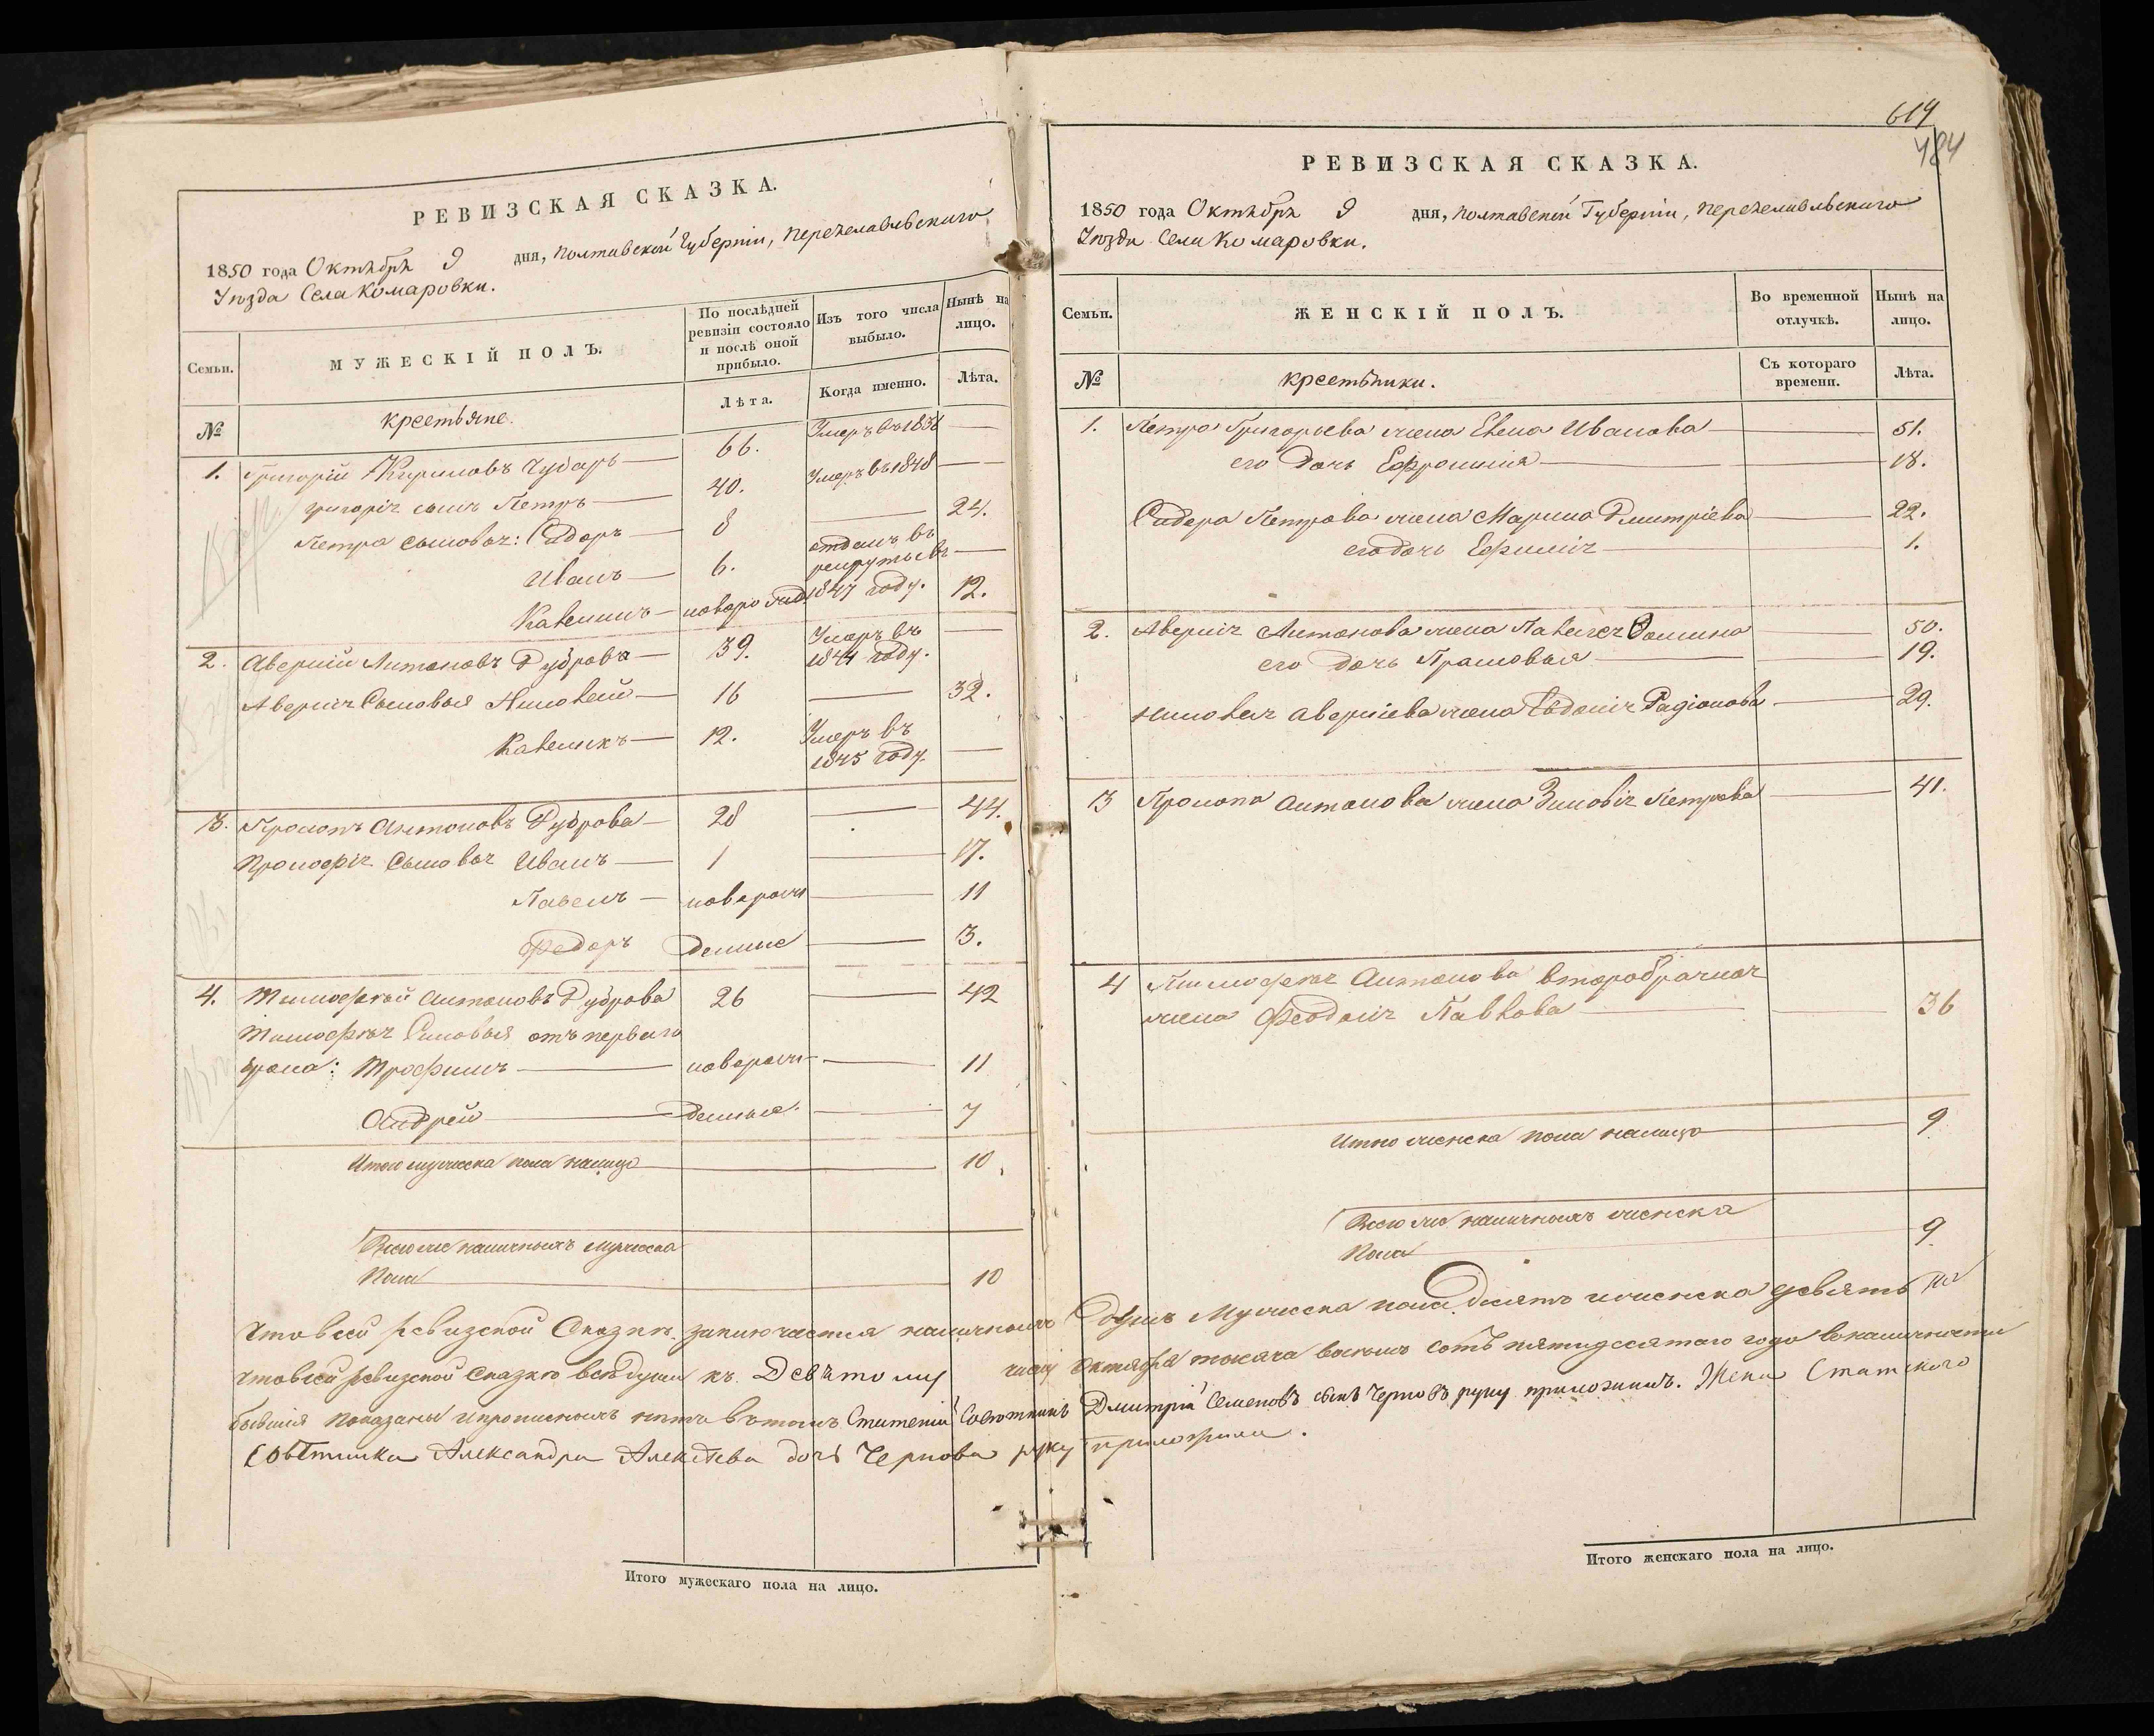 РЕВИЗСКАЯ СКАЗКА.
1850 года Октября 9 дня, Полтавской Губерніи, Переяславльскаго
Уѣзда Села Комаровки.
Семьи.
МУЖЕСКІЙ ПОЛЪ.
По послѣдней ревизіи состояло и послѣ оной прибыло.
Изъ того числа выбыло.
Нынѣ на лицо.
№
крестьяне.
Лѣта.
Когда именно.
Лѣта.
1. Григорій Кириловъ Чубарь 66. Умеръ въ 1838
Григорія сынъ Петръ 40. Умеръ въ 1848
Петра сыновья: Сидоръ 8 24.
Иванъ 6. отданъ въ рекруты въ 1847 году.
новорожд. 12.
2. Аверкій Антоновъ Дуброва 39. Умеръ въ 1844 году.
Аверкія Сыновья 16 32.
12. Умеръ въ 1845 году.
3. Прокопъ Антоновъ Дуброва 28 44.
Прокофія Сыновья Иванъ 1 17.
Павелъ новорож 11
Федоръ денные 3.
4. Тимофѣй Антоновъ Дуброва 26 42
Тимофѣя Сыновья отъ перваго
брака: Трофимъ новорож 11
Андрей денные. 7
Итого мужеска пола налицо 10.
Всего же наличныхъ мужеска
пола 10
Итого мужескаго пола на лицо.
619
484
РЕВИЗСКАЯ СКАЗКА.
1850 года Октября 9 дня, Полтавской Губерніи, Переяславльскаго
Уѣзда Села Комаровки.
Семьи.
ЖЕНСКІЙ ПОЛЪ.
Во временной отлучкѣ.
Нынѣ на лицо.
№
крестьянки.
Съ котораго времени.
Лѣта.
1. Петра Григорьева жена Елена Иванова 51.
его дочь Ефросинія 18.
Сидора Петрова жена Марина Дмитріева 22.
его дочь Ефимія 1.
2. Аверкія Антонова жена Пелагея Фомина 50.
его дочь 19.
Аверкіева жена Евдокія Радіонова 29.
3 Прокопа Антонова жена Зиновія Петрова 41.
4 Тимофѣя Антонова второбрачная
жена Феодосія Павлова 36
Итого женска пола налицо 9
Всего же наличныхъ женска
пола 9.
Что въ сей ревизской Сказкѣ заключается наличныхъ душъ Мужеска пола десять и женска девять
Что въ сей ревизской Сказкѣ всѣ души къ Девятому числу Октября тысяча восемь сотъ пятидесятаго года въ наличности
бывшія показаны и прописныхъ нѣтъ въ томъ Статскій Совѣтникъ Дмитрій Семеновъ сынъ Черновъ руку приложилъ. Жена Статскаго
Совѣтника Александра Алексѣева дочь Чернова руку приложила.
Итого женскаго пола на лицо.